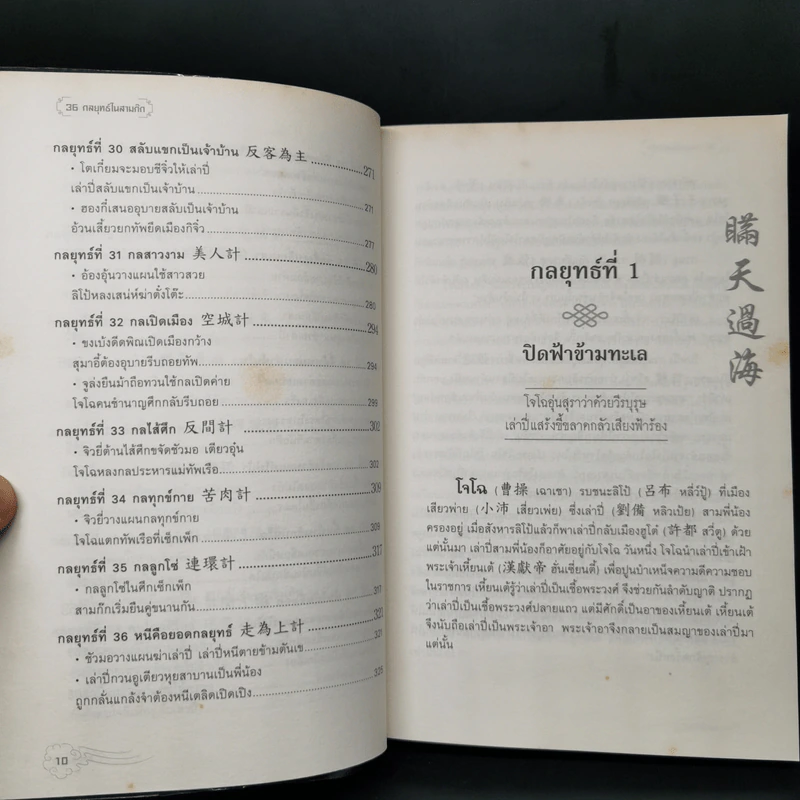 36 กลยุทธ์ในสามก๊ก
กลยุทธ์ที่ 30 สลับแขกเป็นเจ้าบ้าน 反客為主 ..... 271
• โตเกี๋ยมจะมอบชีจิ๋วให้เล่าปี่
เล่าปี่สลับแขกเป็นเจ้าบ้าน ..... 271
• ฮองกี๋เสนออุบายสลับเป็นเจ้าบ้าน
อ้วนเสี้ยวยกทัพยึดเมืองกิจิ๋ว ..... 277
กลยุทธ์ที่ 31 กลสาวงาม 美人計 ..... 280
• อ้องอุ้นวางแผนใช้สาวสวย
ลิโป้หลงเสน่ห์ฆ่าตั๋งโต๊ะ ..... 280
กลยุทธ์ที่ 32 กลเปิดเมือง 空城計 ..... 294
• ขงเบ้งดีดพิณเปิดเมืองกว้าง
สุมาอี้ต้องอุบายรีบถอยทัพ ..... 294
• จูล่งยืนม้าถือทวนใช้กลเปิดค่าย
โจโฉคนชำนาญศึกกลับรีบถอย ..... 299
กลยุทธ์ที่ 33 กลไส้ศึก 反間計 ..... 302
• จิวยี่ต้านไส้ศึกขจัดชัวมอ เตียวอุ๋น
โจโฉหลงกลประหารแม่ทัพเรือ ..... 302
กลยุทธ์ที่ 34 กลทุกข์กาย 苦肉計 ..... 309
• จิวยี่วางแผนกลทุกข์กาย
โจโฉแตกทัพเรือที่เซ็กเพ็ก ..... 309
กลยุทธ์ที่ 35 กลลูกโซ่ 連環計 ..... 317
• กลลูกโซ่ในศึกเซ็กเพ็ก
สามก๊กเริ่มยืนคู่ขนานกัน ..... 317
กลยุทธ์ที่ 36 หนีคือยอดกลยุทธ์ 走為上計 ..... 321
• ชัวมอวางแผนฆ่าเล่าปี่ เล่าปี่หนีตายข้ามตันเข ..... 321
• เล่าปี่กวนอูเตียวหุยสาบานเป็นพี่น้อง
ถูกกลั่นแกล้งจำต้องหนีเตลิดเปิดเปิง ..... 325
10
瞞天過海
กลยุทธ์ที่ 1
ปิดฟ้าข้ามทะเล
โจโฉอุ่นสุราว่าด้วยวีรบุรุษ
เล่าปี่แสร้งขี้ขลาดกลัวเสียงฟ้าร้อง
โจโฉ (曹操 เฉาเชา) รบชนะลิโป้ (呂布 หลี่ว์ปู้) ที่เมือง
เสียวพ่าย (小沛 เสี่ยวเพ่ย) ซึ่งเล่าปี่ (劉備 หลิวเป้ย) สามพี่น้อง
ครองอยู่ เมื่อสังหารลิโป้แล้วก็พาเล่าปี่กลับเมืองฮูโต๋ (許都 สวี่ตู) ด้วย
แต่นั้นมา เล่าปี่สามพี่น้องก็อาศัยอยู่กับโจโฉ วันหนึ่ง โจโฉนำเล่าปี่เข้าเฝ้า
พระเจ้าเหี้ยนเต้ (漢獻帝 ฮั่นเซี่ยนตี้) เพื่อปูนบำเหน็จความดีความชอบ
ในราชการ เหี้ยนเต้รู้ว่าเล่าปี่เป็นเชื้อพระวงศ์ จึงช่วยกันลำดับญาติ ปรากฏ
ว่าเล่าปี่เป็นเชื้อพระวงศ์ปลายแถว แต่มีศักดิ์เป็นอาของเหี้ยนเต้ เหี้ยนเต้
จึงนับถือเล่าปี่เป็นพระเจ้าอา พระเจ้าอาจึงกลายเป็นสมญาของเล่าปี่มา
แต่นั้น